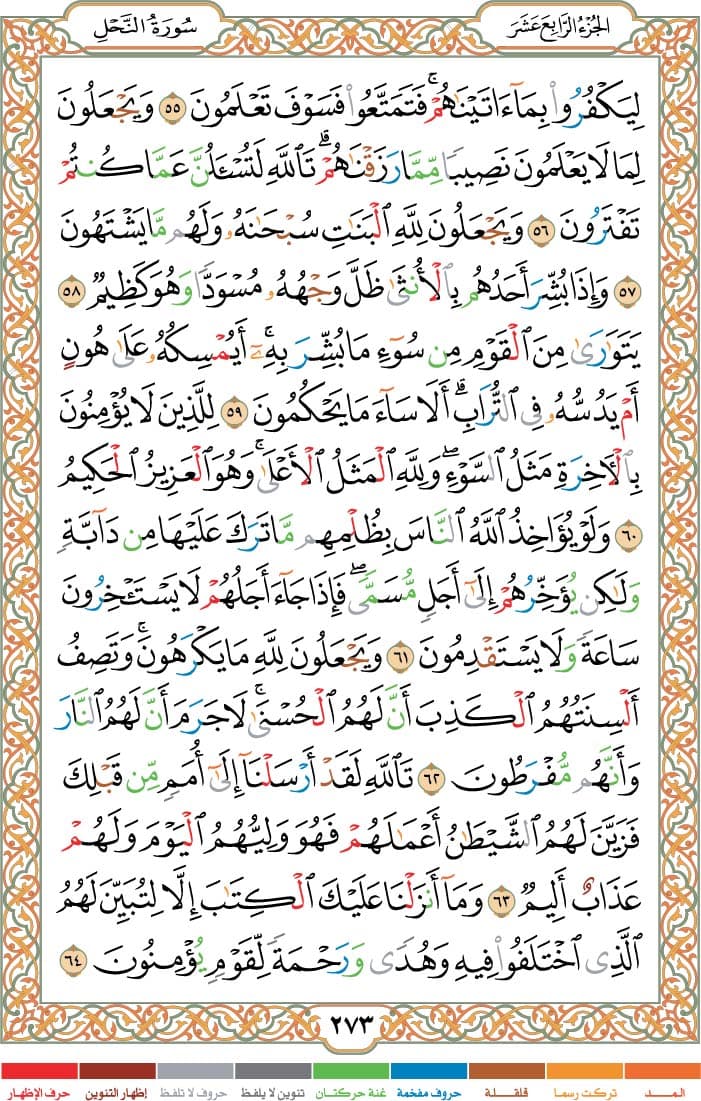 سُورَةُ النَّحْلِ
الجُزْءُ الرَّابِعَ عَشَرَ
لِيَكْفُرُواْ بِمَآ ءَاتَيْنَٰهُمْۚ فَتَمَتَّعُواْ فَسَوْفَ تَعْلَمُونَ ٥٥ وَيَجْعَلُونَ
لِمَا لَا يَعْلَمُونَ نَصِيبٗا مِّمَّا رَزَقْنَٰهُمْۗ تَٱللَّهِ لَتُسْـَٔلُنَّ عَمَّا كُنتُمْ
تَفْتَرُونَ ٥٦ وَيَجْعَلُونَ لِلَّهِ ٱلْبَنَٰتِ سُبْحَٰنَهُۥ وَلَهُم مَّا يَشْتَهُونَ
٥٧ وَإِذَا بُشِّرَ أَحَدُهُم بِٱلْأُنثَىٰ ظَلَّ وَجْهُهُۥ مُسْوَدّٗا وَهُوَ كَظِيمٞ ٥٨
يَتَوَٰرَىٰ مِنَ ٱلْقَوْمِ مِن سُوٓءِ مَا بُشِّرَ بِهِۦٓۚ أَيُمْسِكُهُۥ عَلَىٰ هُونٍ
أَمْ يَدُسُّهُۥ فِي ٱلتُّرَابِۗ أَلَا سَآءَ مَا يَحْكُمُونَ ٥٩ لِلَّذِينَ لَا يُؤْمِنُونَ
بِٱلْأٓخِرَةِ مَثَلُ ٱلسَّوْءِۖ وَلِلَّهِ ٱلْمَثَلُ ٱلْأَعْلَىٰۚ وَهُوَ ٱلْعَزِيزُ ٱلْحَكِيمُ
٦٠ وَلَوْ يُؤَاخِذُ ٱللَّهُ ٱلنَّاسَ بِظُلْمِهِم مَّا تَرَكَ عَلَيْهَا مِن دَآبَّةٖ
وَلَٰكِن يُؤَخِّرُهُمْ إِلَىٰٓ أَجَلٖ مُّسَمّٗىۖ فَإِذَا جَآءَ أَجَلُهُمْ لَا يَسْتَـْٔخِرُونَ
سَاعَةٗ وَلَا يَسْتَقْدِمُونَ ٦١ وَيَجْعَلُونَ لِلَّهِ مَا يَكْرَهُونَۚ وَتَصِفُ
أَلْسِنَتُهُمُ ٱلْكَذِبَ أَنَّ لَهُمُ ٱلْحُسْنَىٰۚ لَا جَرَمَ أَنَّ لَهُمُ ٱلنَّارَ
وَأَنَّهُم مُّفْرَطُونَ ٦٢ تَٱللَّهِ لَقَدْ أَرْسَلْنَآ إِلَىٰٓ أُمَمٖ مِّن قَبْلِكَ
فَزَيَّنَ لَهُمُ ٱلشَّيْطَٰنُ أَعْمَٰلَهُمْ فَهُوَ وَلِيُّهُمُ ٱلْيَوْمَ وَلَهُمْ
عَذَابٌ أَلِيمٞ ٦٣ وَمَآ أَنزَلْنَا عَلَيْكَ ٱلْكِتَٰبَ إِلَّا لِتُبَيِّنَ لَهُمُ
ٱلَّذِي ٱخْتَلَفُواْ فِيهِ وَهُدٗى وَرَحْمَةٗ لِّقَوْمٖ يُؤْمِنُونَ ٦٤
٢٧٣
المــد
تركت رسما
قلقلة
حروف مفخمة
غنة حركتان
تنوين لا يلفظ
حروف لا تلفظ
إظهار التنوين
حرف الإظهار